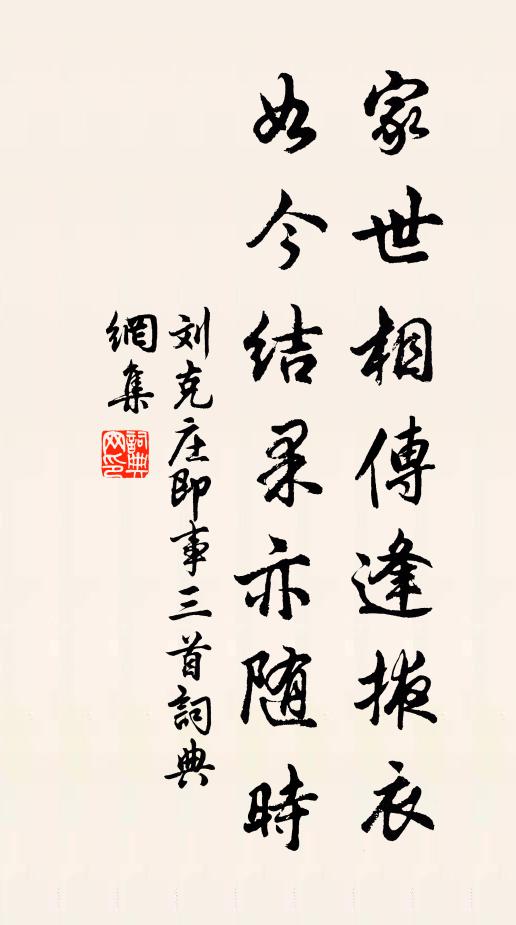 家世相傳逢掖衣
如今結果亦随時
刘克庄即事三首詞典
網集
詞典網印